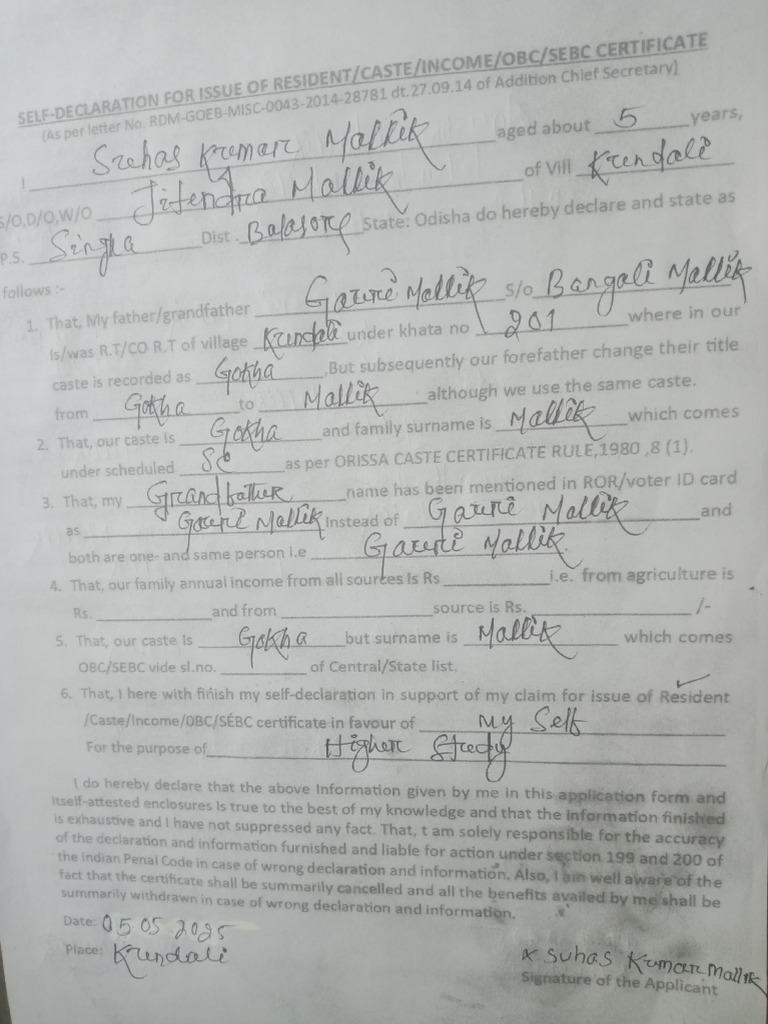 SELF-DECLARATION FOR ISSUE OF RESIDENT/CASTE/INCOME/OBC/SEBC CERTIFICATE
(As per letter No. RDM-GOEB-MISC-0043-2014-28781 dt.27.09.14 of Addition Chief Secretary)
I Suhas Kumar Mallik aged about 5 years,
S/O,D/O,W/O Jitendra Mallik of Vill Kundali
P.S. Singla Dist. Balasore State: Odisha do hereby declare and state as
follows :-
1. That, My father/grandfather Gouri Mallik S/o Bangali Mallik
Is/was R.T/CO R.T of village Kundali under khata no 201 where in our
caste is recorded as Gokha ,But subsequently our forefather change their title
from Gokha to Mallik although we use the same caste.
2. That, our caste is Gokha and family surname is Mallik which comes
under scheduled SC as per ORISSA CASTE CERTIFICATE RULE,1980 ,8 (1).
3. That, my Grandfather name has been mentioned in ROR/voter ID card
as Gouri Mallik Instead of Gouri Mallik and
both are one- and same person i.e Gouri Mallik.
4. That, our family annual income from all sources Is Rs i.e. from agriculture is
Rs. and from source is Rs. /-
5. That, our caste Is Gokha but surname is Mallik which comes
OBC/SEBC vide sl.no. of Central/State list.
6. That, I here with finish my self-declaration in support of my claim for issue of Resident
/Caste/Income/OBC/SEBC certificate in favour of my Self
For the purpose of Higher Study
I do hereby declare that the above Information given by me in this application form and
Itself-attested enclosures Is true to the best of my knowledge and that the information finished
is exhaustive and I have not suppressed any fact. That, t am solely responsible for the accuracy
of the declaration and information furnished and liable for action under section 199 and 200 of
the Indian Penal Code in case of wrong declaration and information. Also, I am well aware of the
fact that the certificate shall be summarily cancelled and all the benefits availed by me shall be
summarily withdrawn in case of wrong declaration and information.
Date: 05 05 2025
Place: Kundali
x Suhas Kumar Mallik
Signature of the Applicant